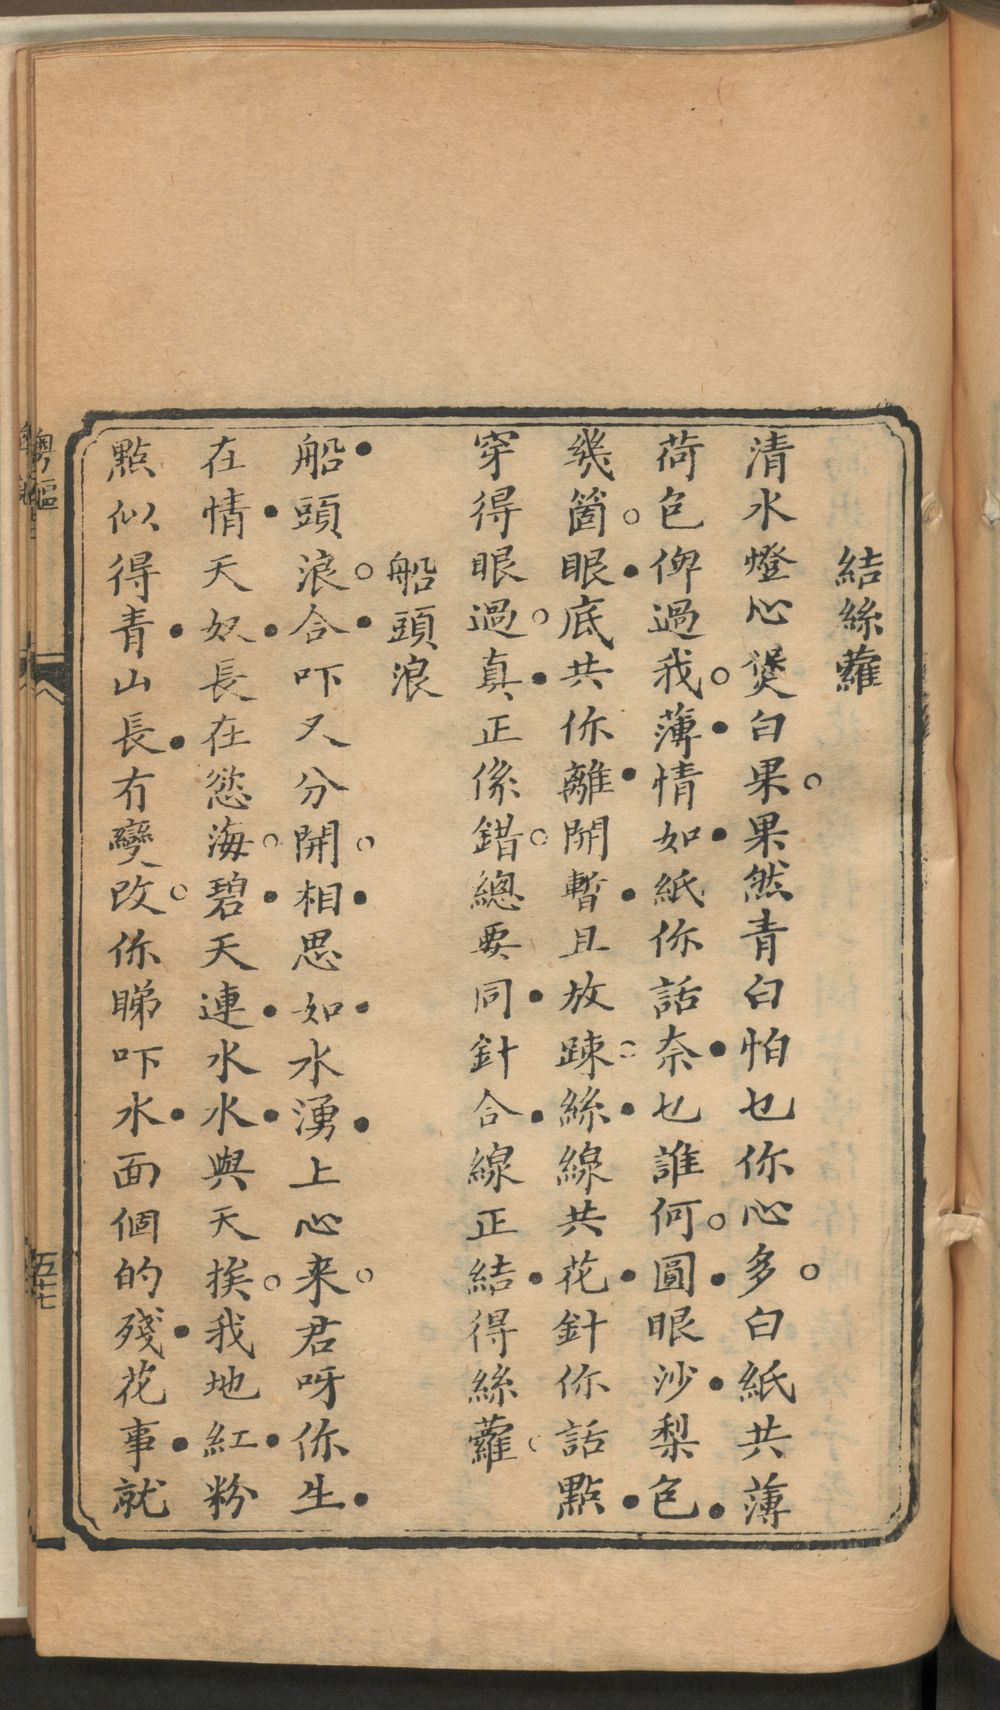 結絲蘿
清水燈心煲白果。果然青白怕乜你心多。白紙共薄
荷包俾過我。薄情如紙你話奈乜誰何。圓眼沙梨包
幾箇。眼底共你離開暫且放疎。絲線共花針你話點
穿得眼過。真正係錯。總要同針合線正結得絲蘿。
船頭浪
船頭浪。合吓又分開。相思如水湧上心来。君呀你生
在情天奴長在慾海。碧天連水水與天挨。我地紅粉
點似得青山長冇變改。你睇吓水面個的殘花事就
粵謳
五十七